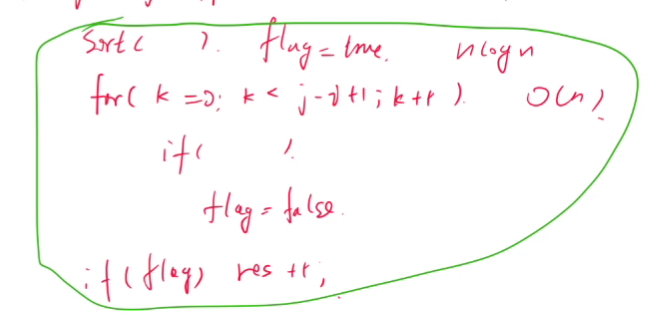 sort( ). flag = true. nlogn
for( k = 0; k < j-i+1; k++ ). O(n)
if( ).
flag = false.
if(flag) res ++;